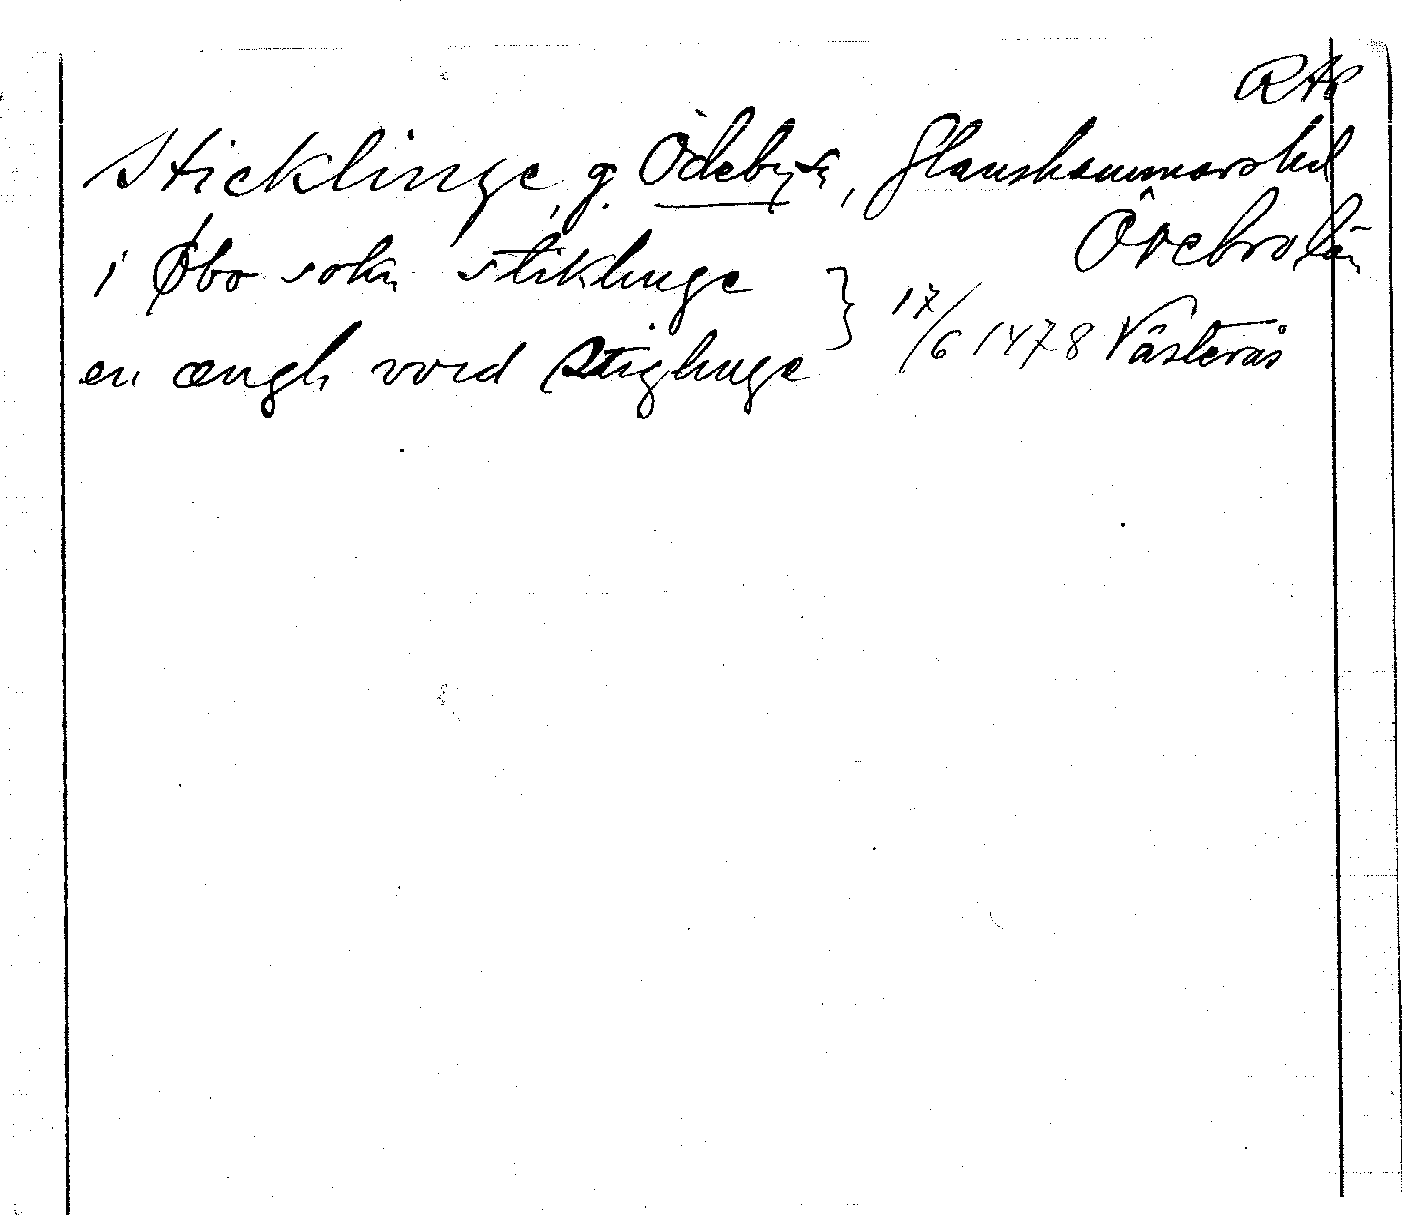 RAp
Sticklinge, g. Ödeby sn, Glanshammars hd
Örebro län
i Øbo sokn stiklinge
en ængh vvid Stiglinge } 17/6 1478 Västerås